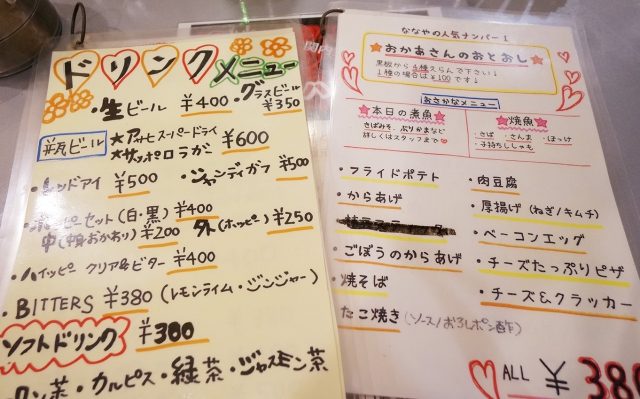 ドリンクメニュー
・生ビール ¥400 ・グラスビール ¥350
瓶ビール ★アサヒスーパードライ ★サッポロラガー ¥600
・レッドアイ ¥500 ・シャンディガフ ¥500
・ホッピーセット(白・黒) ¥400
中(焼酎おかわり) ¥200 外(ホッピー) ¥250
・ハイッピー クリア&ビター ¥400
・BITTERS ¥380 (レモンライム・ジンジャー)
ソフトドリンク ¥300
・カルピス・緑茶・ジャスミン茶
ななやの人気ナンバー1
★おかあさんのおとおし★
黒板から4種えらんで下さい!
1種の場合は¥100です!
おさかなメニュー
★本日の煮魚★
さばみそ、ぶりかまなど
詳しくはスタッフまで
★焼魚★
・さば ・さんま ・ほっけ
・子持ちししゃも
・フライドポテト
・からあげ
・ごぼうのからあげ
・焼そば
・たこ焼き(ソース/おろしポン酢)
・肉豆腐
・厚揚げ(ねぎ/キムチ)
・ベーコンエッグ
・チーズたっぷりピザ
・チーズ&クラッカー
ALL ¥380